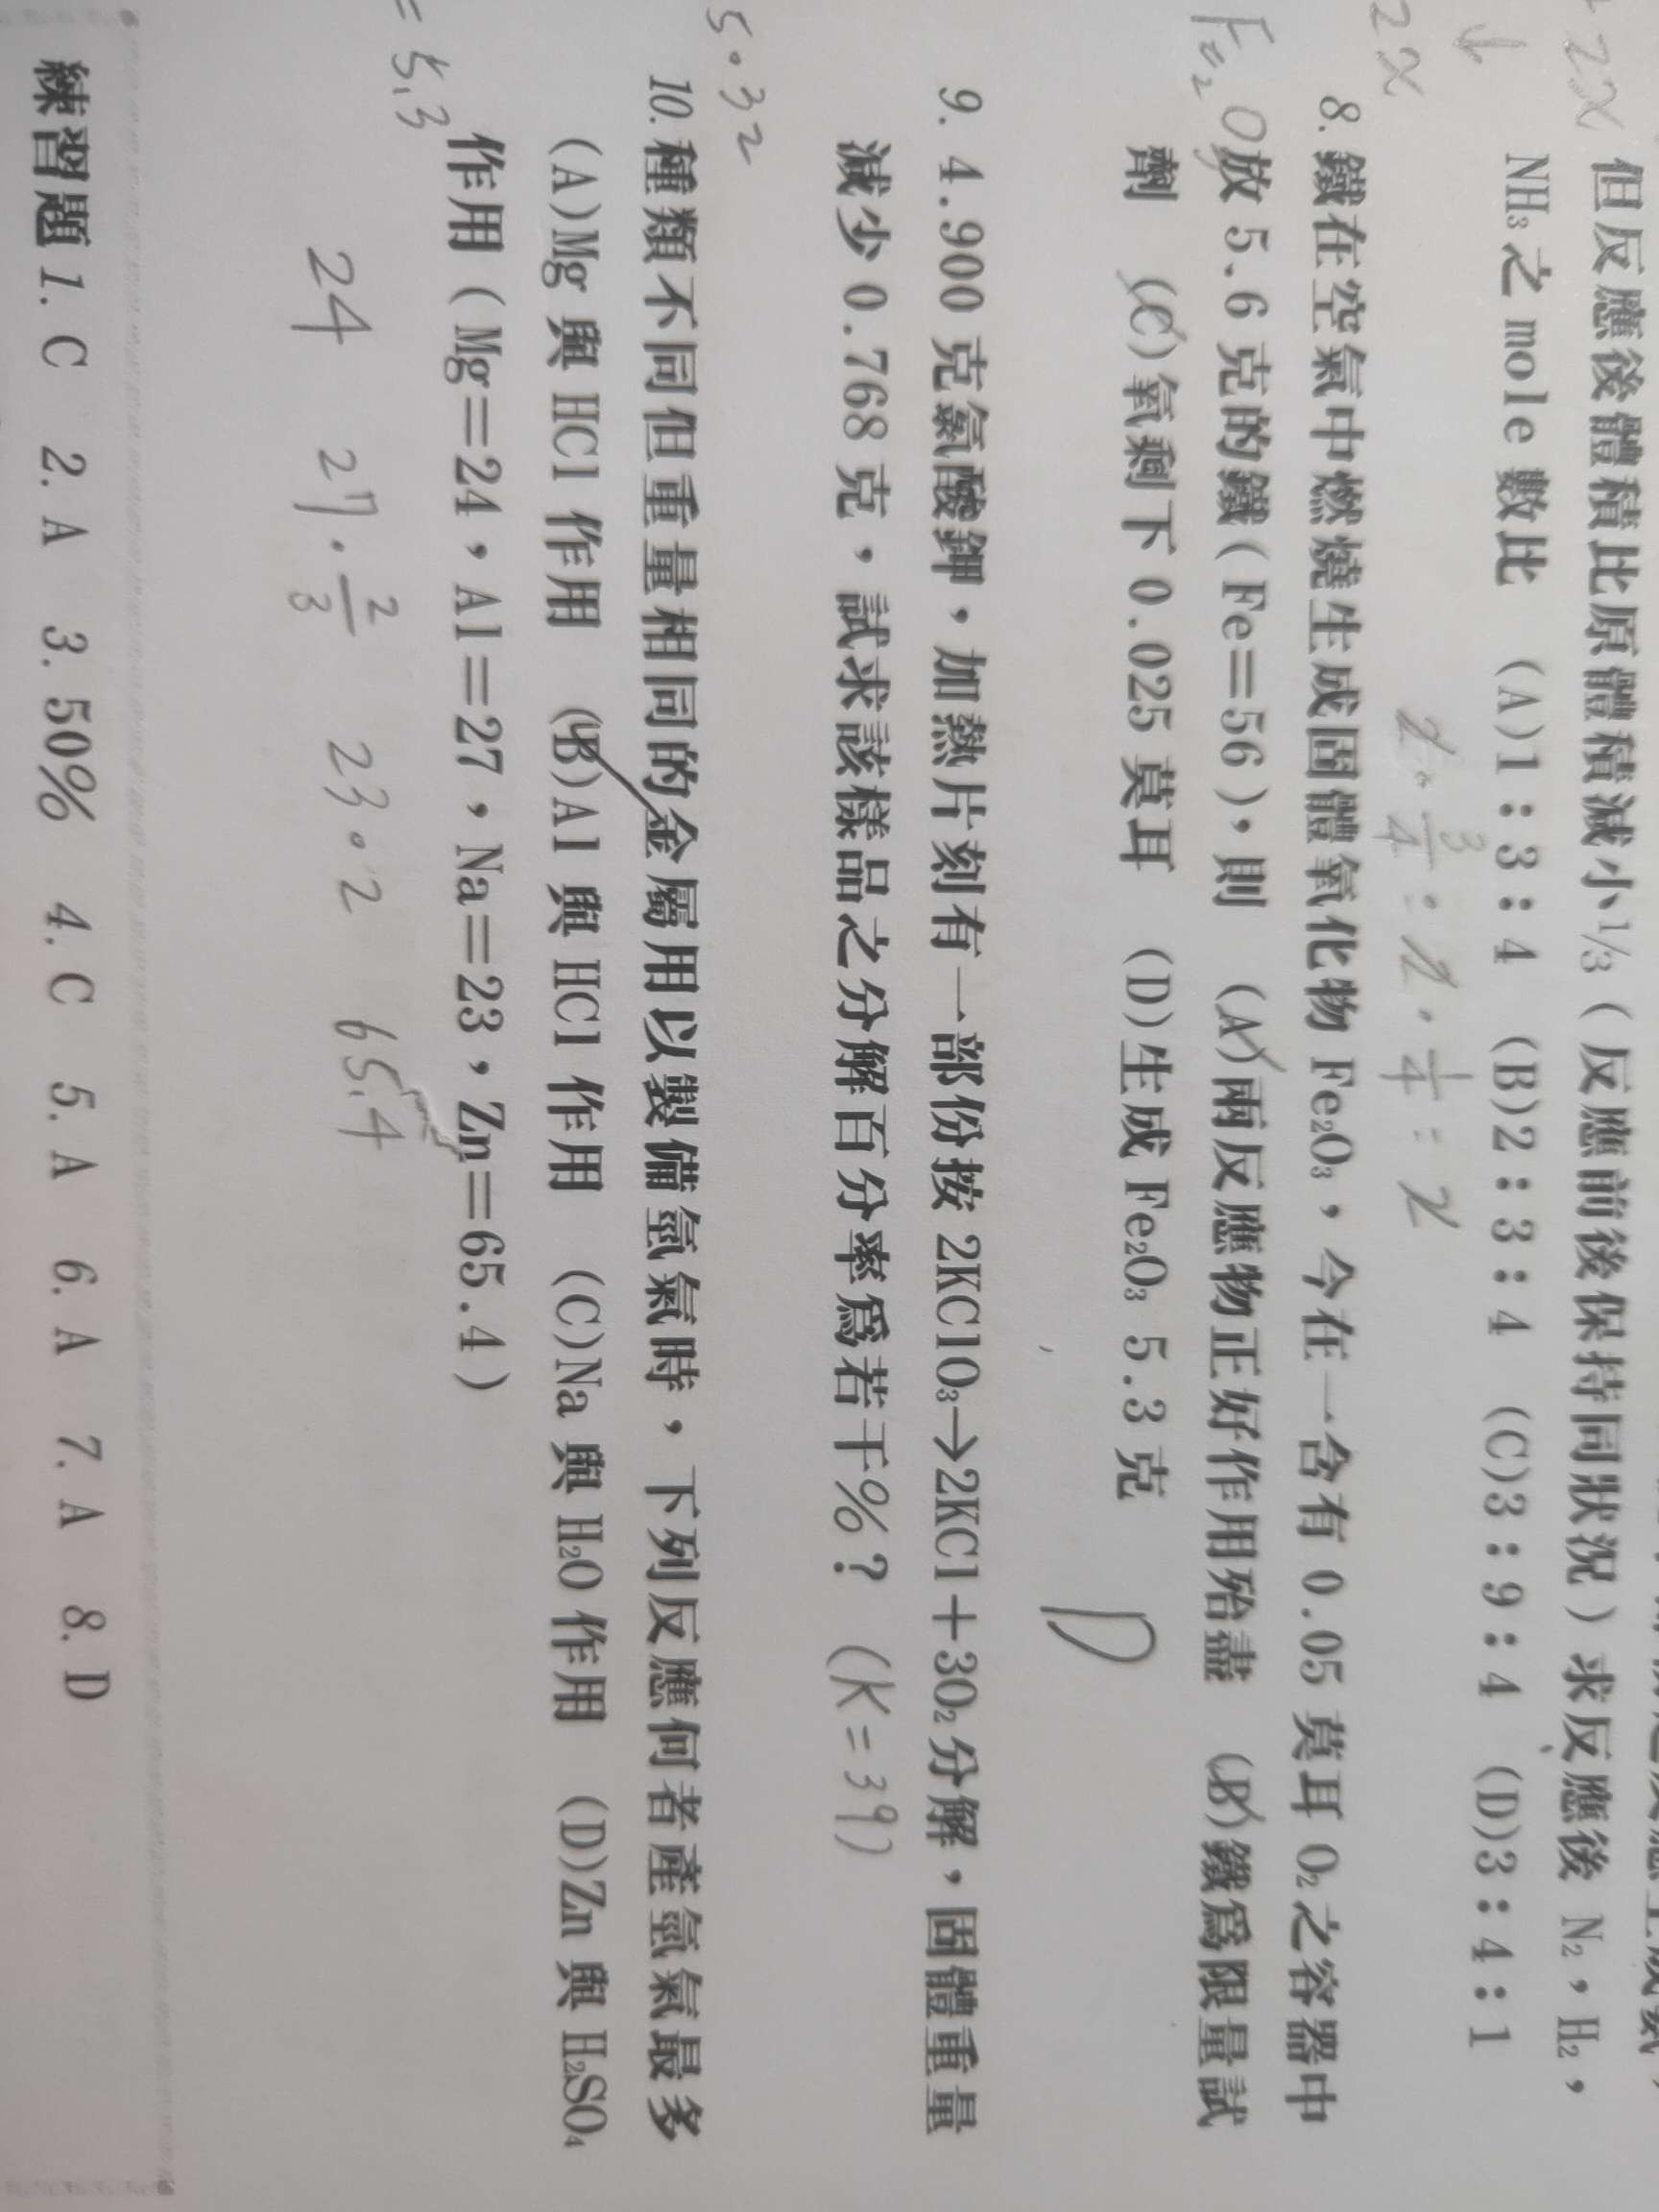 但反應後體積比原體積減小1/3（反應前後保持同狀況）求反應後 N₂，H₂，
NH₃之 mole 數比 (A)1：3：4 (B)2：3：4 (C)3：9：4 (D)3：4：1
2x
2x
2·3/4 : 2·1/4 : 2
8.鐵在空氣中燃燒生成固體氧化物 Fe₂O₃，今在一含有 0.05 莫耳 O₂之容器中
放 5.6 克的鐵（Fe＝56），則 (A)兩反應物正好作用殆盡 (B)鐵爲限量試
劑 (C)氧剩下 0.025 莫耳 (D)生成 Fe₂O₃ 5.3 克
D
9. 4.900 克氯酸鉀，加熱片刻有一部份按 2KClO₃→2KCl＋3O₂分解，固體重量
減少 0.768 克，試求該樣品之分解百分率爲若干%？ (K=39)
10.種類不同但重量相同的金屬用以製備氫氣時，下列反應何者產氫氣最多
(A)Mg 與 HCl 作用 (B)Al 與 HCl 作用 (C)Na 與 H₂O 作用 (D)Zn 與 H₂SO₄
作用（Mg＝24，Al＝27，Na＝23，Zn＝65.4）
= 5.3
24 27·2/3 23·2 65.4
練習題 1. C 2. A 3. 50% 4. C 5. A 6. A 7. A 8. D